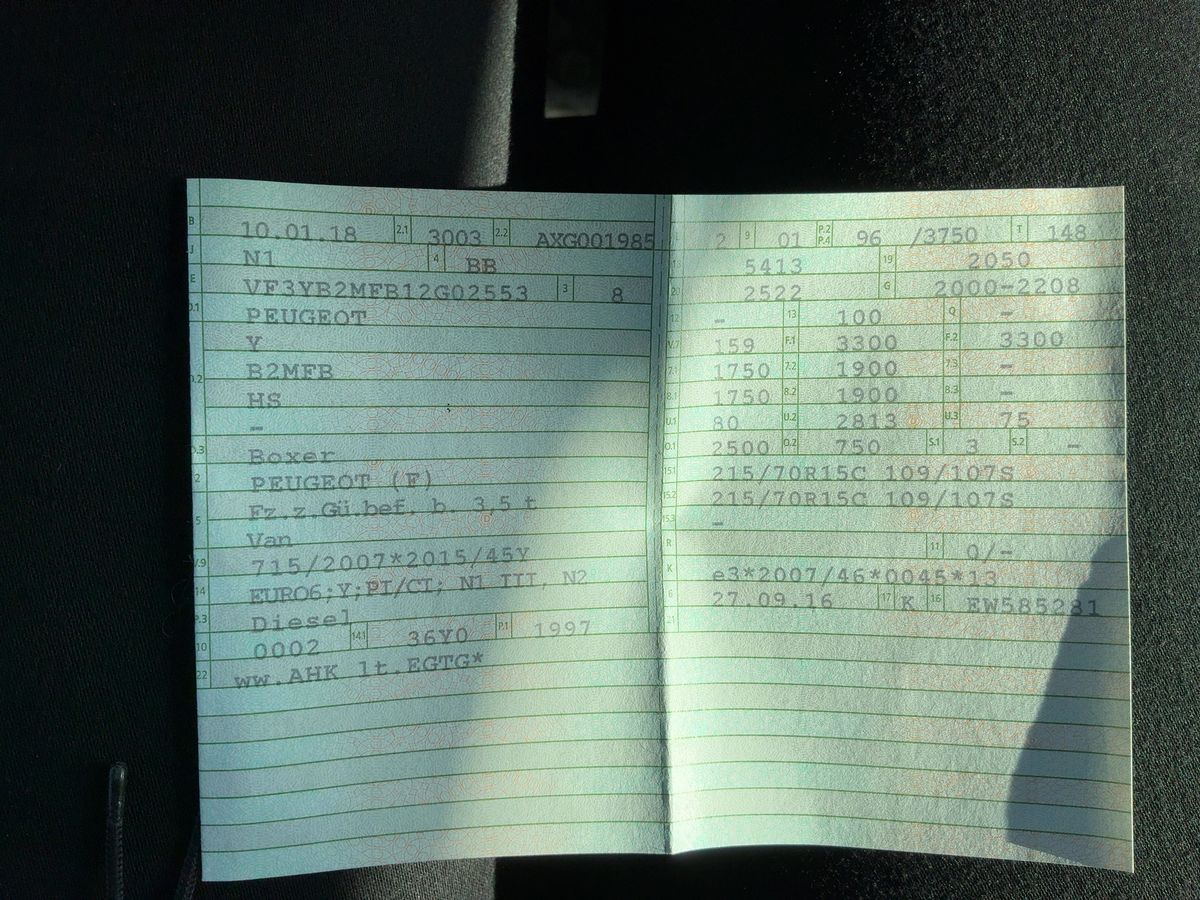 B 10.01.18 2.1 3003 2.2 AXG001985
J N1 4 BB
E VF3YB2MFB12G02553 3 8
D.1 PEUGEOT
Y
D.2 B2MFB
HS
-
D.3 Boxer
2 PEUGEOT (F)
5 Fz.z.Gü.bef. b. 3,5 t
Van
V.9 715/2007*2015/45Y
14 EURO6;Y;PI/CI; N1 III, N2
P.3 Diesel
10 0002 14.1 36Y0 P.1 1997
22 ww.AHK lt.EGTG*
2 9 01 P.2 P.4 96 /3750 T 148
5413 19 2050
2522 G 2000-2208
12 - 13 100 Q -
V.7 159 F.1 3300 F.2 3300
7.1 1750 7.2 1900 7.3 -
8.1 1750 8.2 1900 8.3 -
U.1 80 U.2 2813 U.3 75
O.1 2500 O.2 750 S.1 3 S.2 -
15.1 215/70R15C 109/107S
15.2 215/70R15C 109/107S
15.3 -
R 11 0/-
K e3*2007/46*0045*13
6 27.09.16 17 K 16 EW585281
21